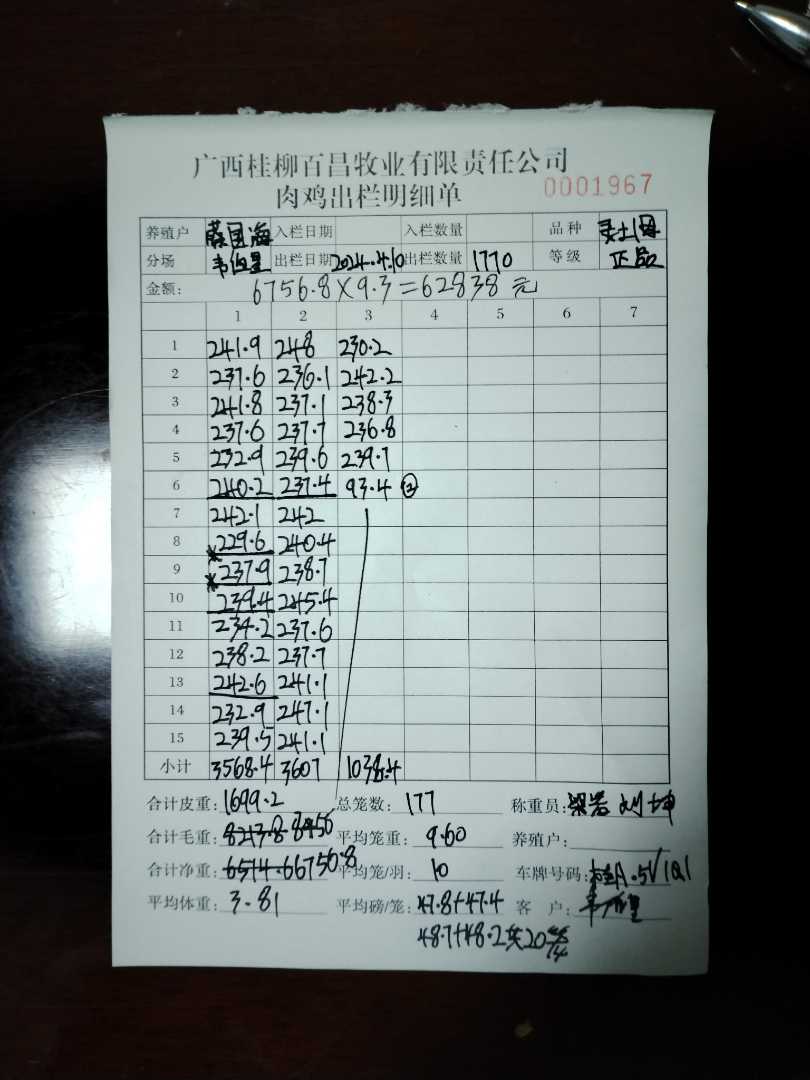 广西桂柳百昌牧业有限责任公司
肉鸡出栏明细单 0001967
养殖户 入栏日期 入栏数量 品种
分场 出栏日期 2024.4.10 出栏数量 1770 等级 正品
金额: 6756.8×9.3=62838元
1 2 3 4 5 6 7
1 241.9 248 230.2
2 237.6 236.1 242.2
3 241.8 237.1 238.3
4 237.6 237.7 236.8
5 232.9 239.6 239.7
6 240.2 237.4 93.4 ②
7 242.1 242
8 *229.6 240.4
9 *237.9 238.7
10 239.4 245.4
11 234.2 237.6
12 238.2 237.7
13 242.6 241.1
14 232.9 247.1
15 239.5 241.1
小计 3568.4 3607 1038.4
合计皮重: 1699.2 总笼数: 177 称重员:
合计毛重: 8213.8 8456 平均笼重: 9.60 养殖户:
合计净重: 6514.6 6756.8 平均笼/羽: 10 车牌号码: 桂A·5V1Q1
平均体重: 3.81 平均磅/笼: 47.8+47.4 客户:
48.7+48.2